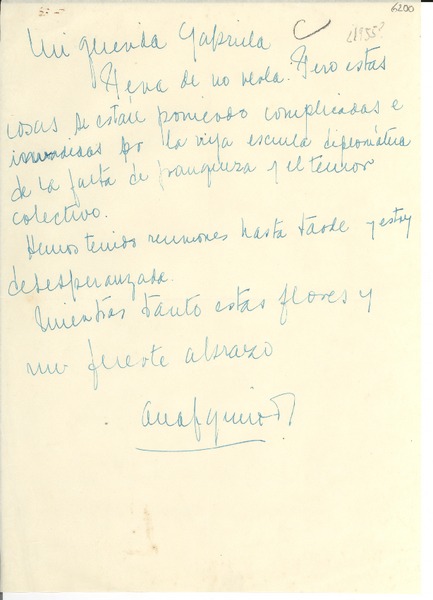 6200
[1955?]
Mi querida Gabriela
Pena de no verla. Pero estas
cosas se están poniendo complicadas e
invadidas por la vieja escuela diplomática
de la falta de franqueza y el temor
colectivo.
Hemos tenido reuniones hasta tarde y estoy
desesperanzada.
Mientras tanto estas flores y
mi fuerte abrazo